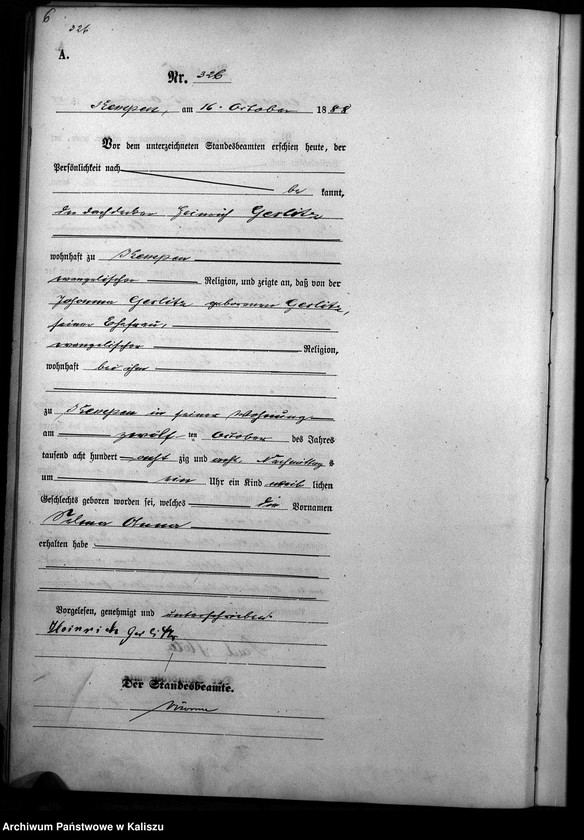 6
326
A.
Nr. 326
Kempen, am 16. October 1888
Vor dem unterzeichneten Standesbeamten erschien heute, der
Persönlichkeit nach
be kannt,
der Dachdecker Heinrich Gerlitz
wohnhaft zu Kempen
evangelischer Religion, und zeigte an, daß von der
Johanna Gerlitz geborenen Gerlitz,
seiner Ehefrau,
evangelischer Religion,
wohnhaft bei ihm
zu Kempen in seiner Wohnung
am zwölf ten October des Jahres
tausend acht hundert acht zig und acht, Nachmittag s
um ein Uhr ein Kind weib lichen
Geschlechts geboren worden sei, welches die Vornamen
Selma Anna
erhalten habe
Vorgelesen, genehmigt und unterschrieben
Heinrich Gerlitz
Der Standesbeamte.
Archiwum Państwowe w Kaliszu